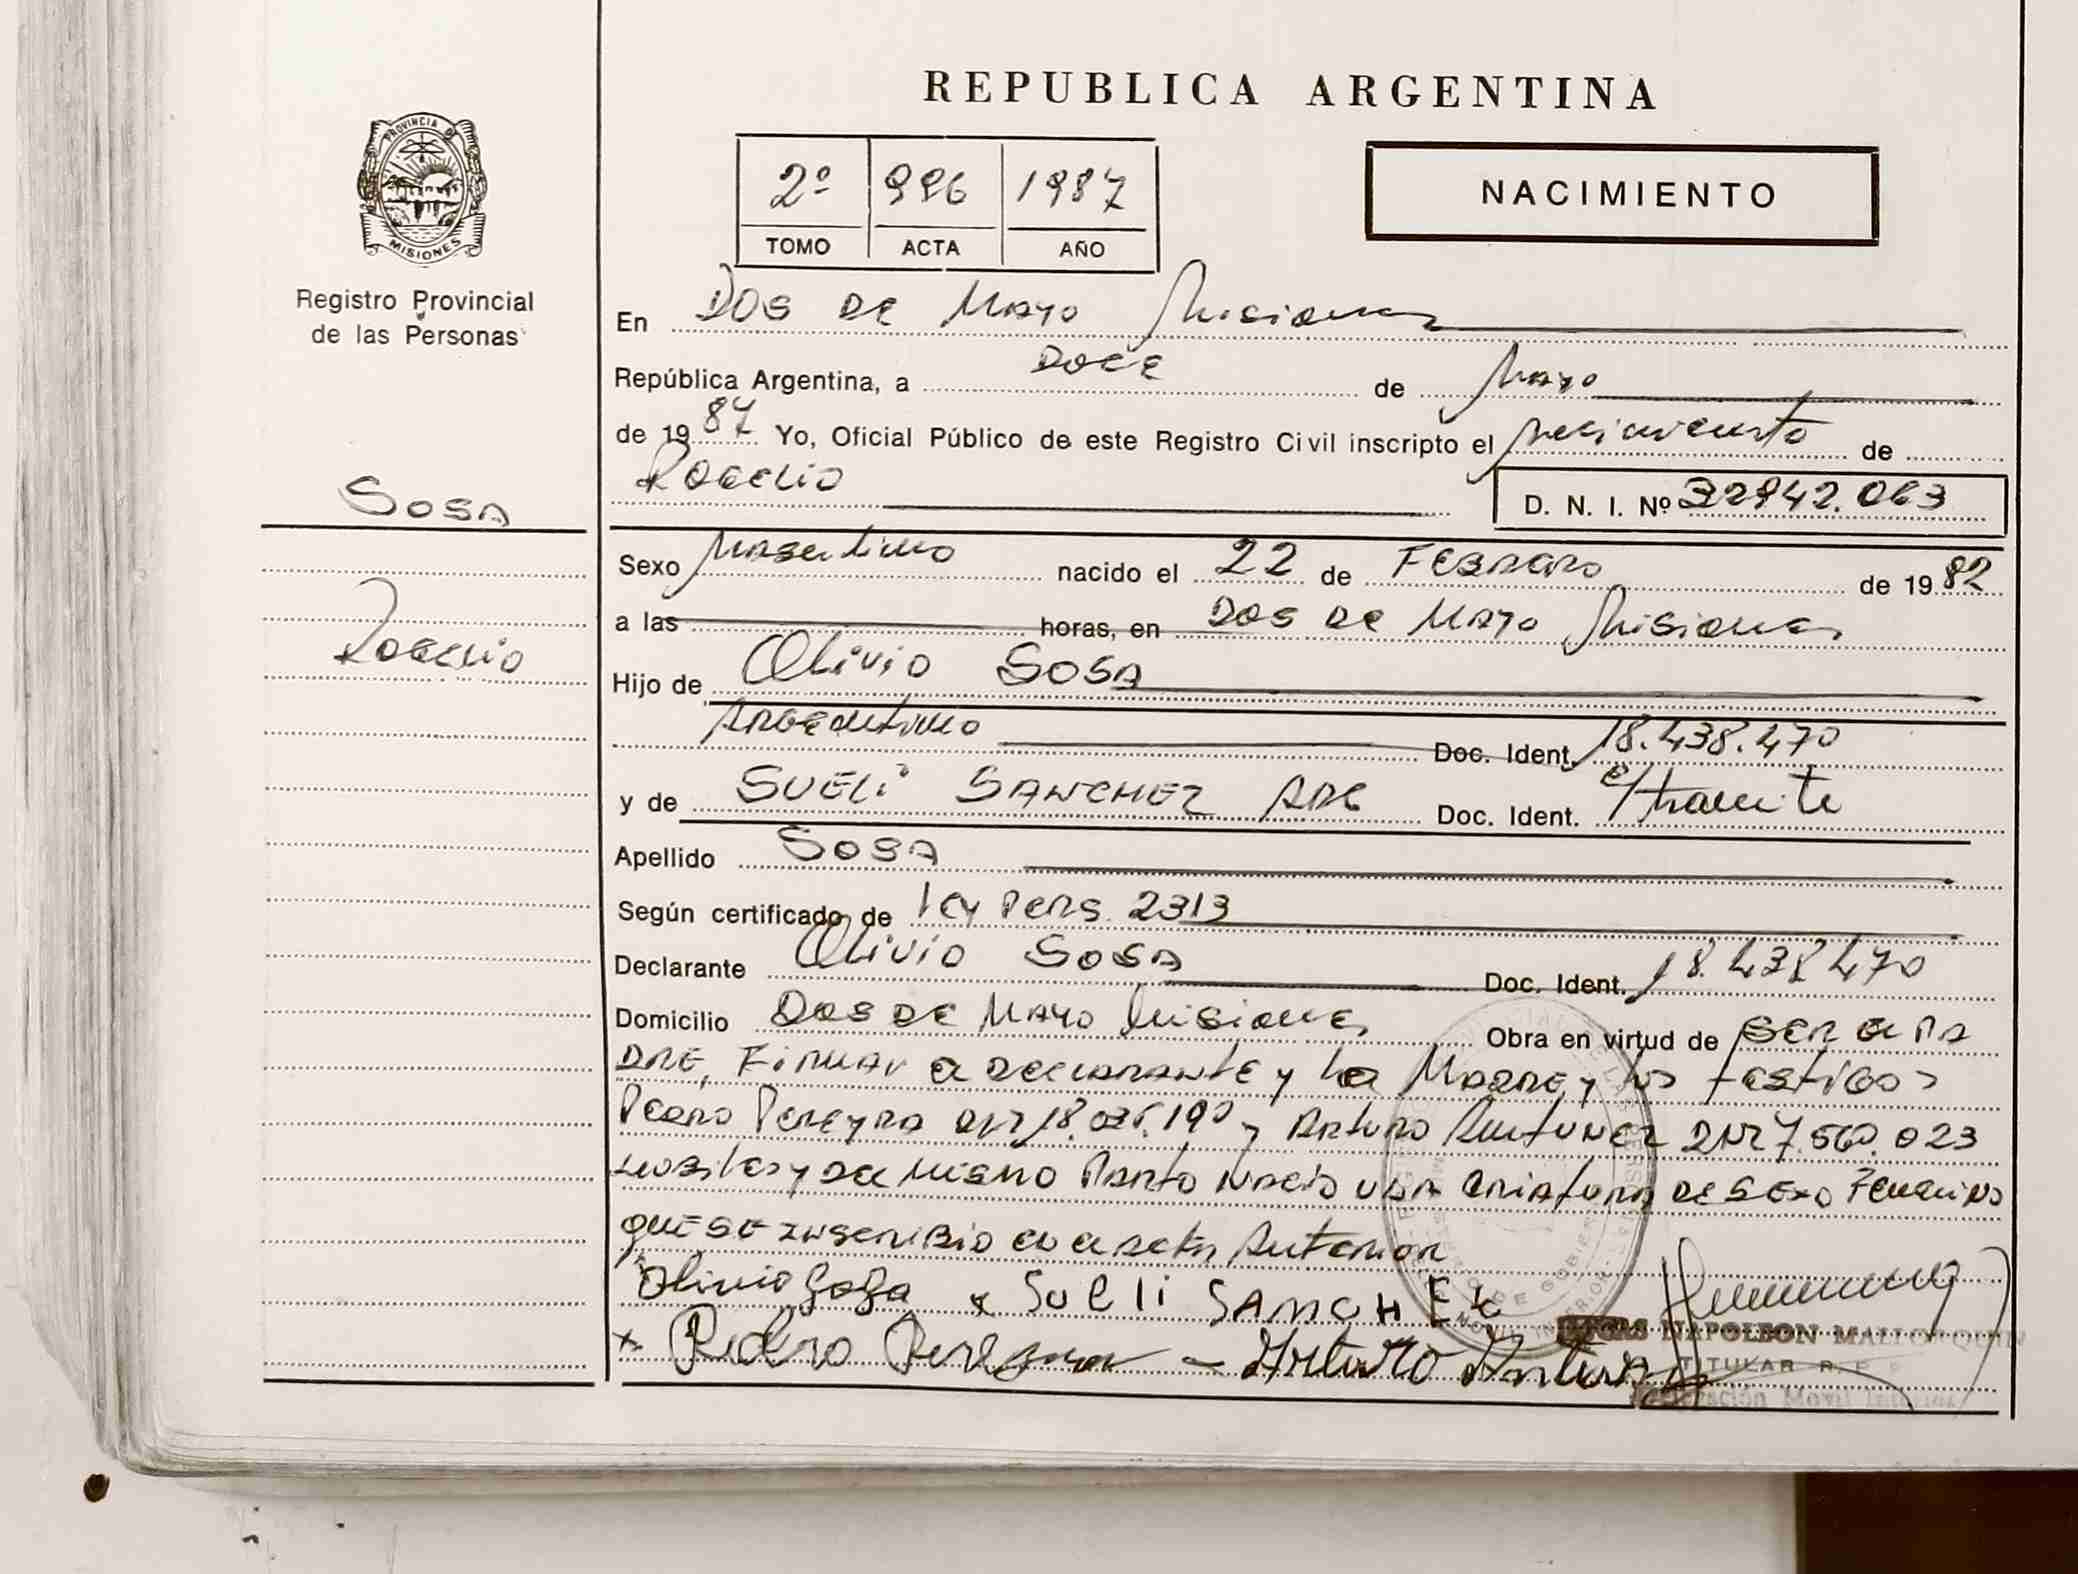 REPUBLICA ARGENTINA
PROVINCIA DE
MISIONES
Registro Provincial
de las Personas
2º 996 1987
TOMO ACTA AÑO
NACIMIENTO
En DOS DE MAYO Misiones
República Argentina, a DOCE de Mayo
de 1987 Yo, Oficial Público de este Registro Civil inscripto el nacimiento de
Rogelio
D. N. I. Nº 32942.063
SOSA
Rogelio
Sexo Masculino nacido el 22 de Febrero de 1982
a las horas, en DOS DE MAYO Misiones
Hijo de Olivio SOSA
Argentino Doc. Ident. 18.438.470
y de SUELi SANCHEZ ARG Doc. Ident. e/tramite
Apellido SOSA
Según certificado de Ley Pcra. 2313
Declarante Olivio SOSA Doc. Ident. 18.438.470
Domicilio DOS DE MAYO Misiones Obra en virtud de SER el PA
DRE, Firman el declarante y la Madre y los testigos
Pedro Pereyra DNI 18.026.190 y Arturo Antunez DNI 7.560.023
habiles y del mismo Parto Nacio una criatura de sexo Femenino
que se inscribio en el acta Anterior
Olivio Sosa x SUEli SANCHEZ
x Pedro Pereyra - Arturo Antunez
NAPOLEON MALLORQUIN
TITULAR R. P.
Movil